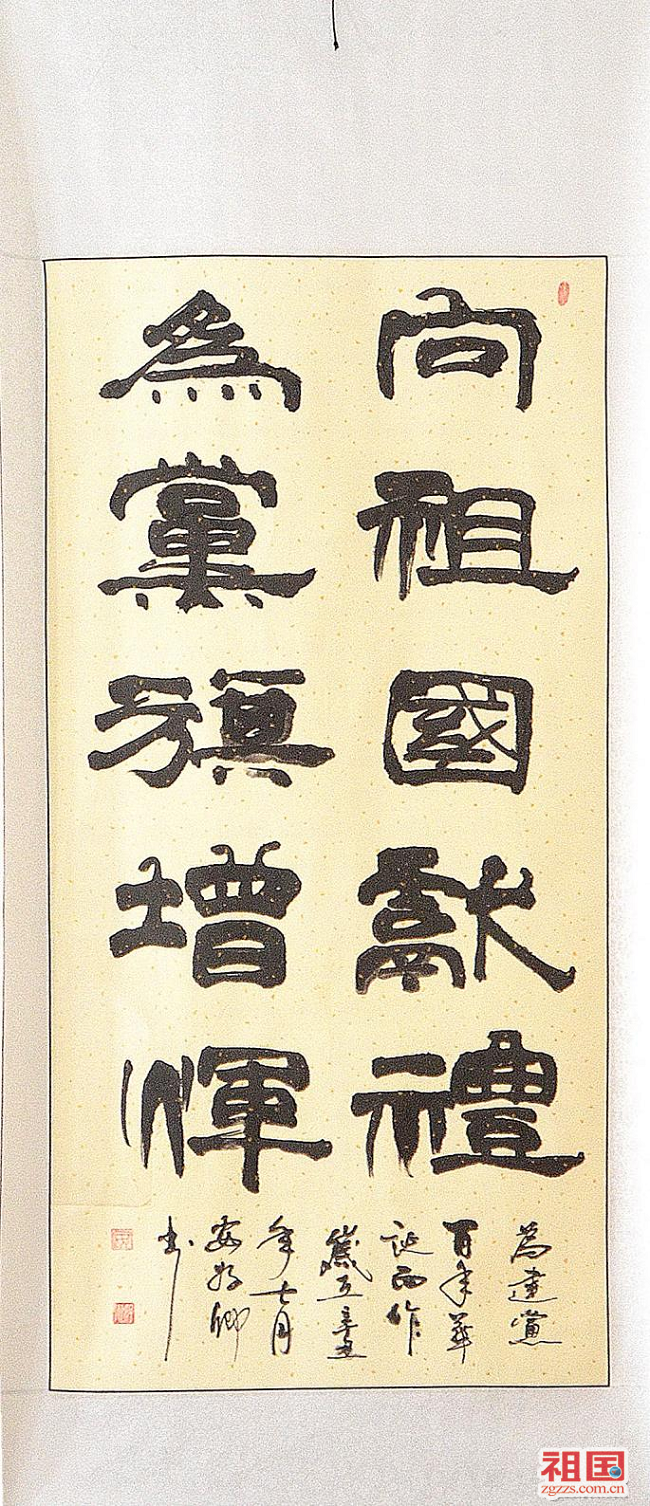 向祖國獻禮
為黨旗增煇
為建黨
百年華
誕而作
歲在辛丑
年七月
卿
书
祖国
zgzzs.com.cn